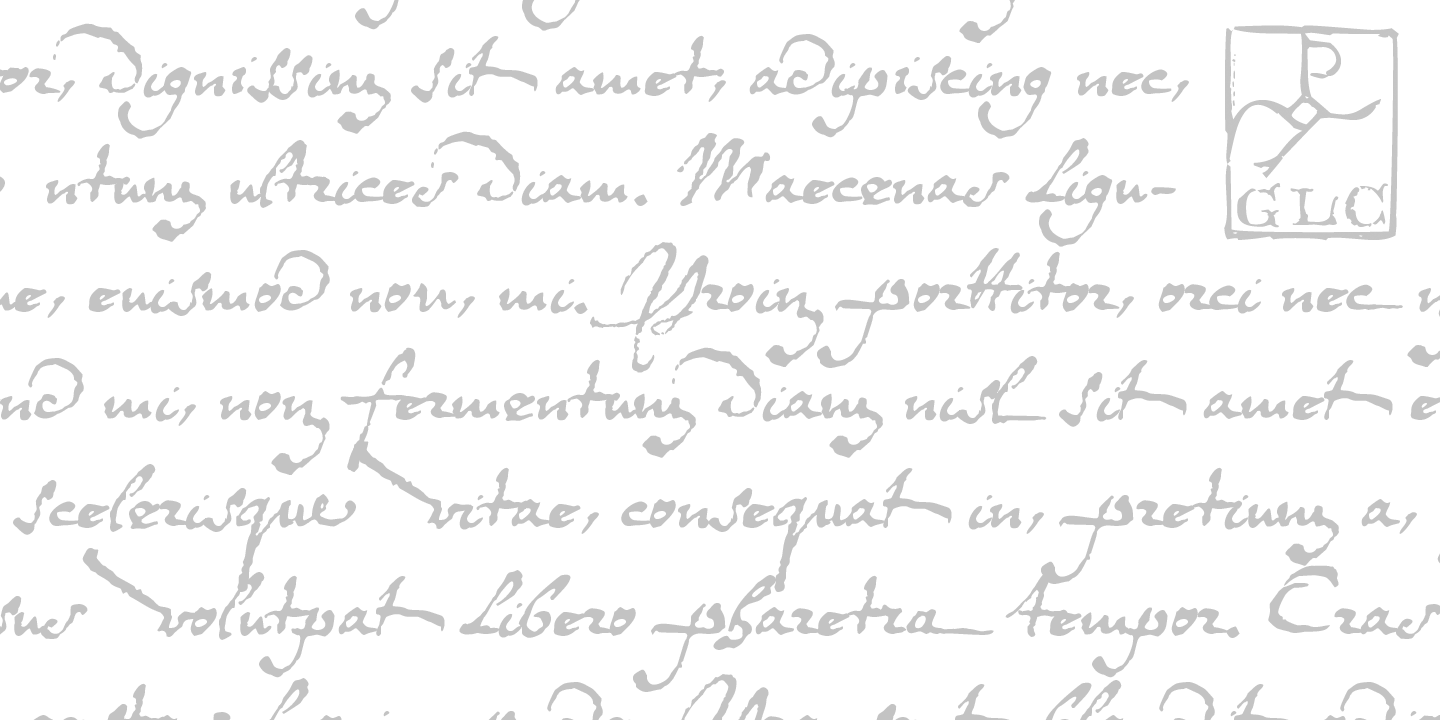 or, dignissim sit amet, adipiscing nec,
ntum ultrices diam. Maecenas ligu-
ue, euismod non, mi. Proin porttitor, orci nec
nd mi, non fermentum diam nisl sit amet e
scelerisque vitae, consequat in, pretium a,
sus volutpat libero pharetra tempor. Cras
GLC